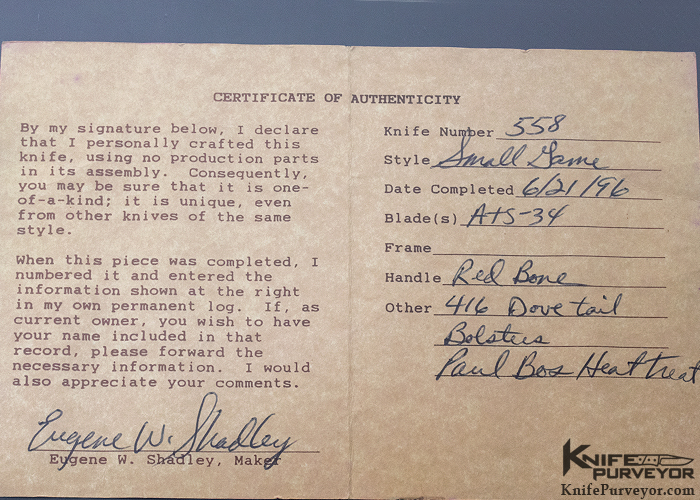 CERTIFICATE OF AUTHENTICITY
By my signature below, I declare
that I personally crafted this
knife, using no production parts
in its assembly. Consequently,
you may be sure that it is one-
of-a-kind; it is unique, even
from other knives of the same
style.
When this piece was completed, I
numbered it and entered the
information shown at the right
in my own permanent log. If, as
current owner, you wish to have
your name included in that
record, please forward the
necessary information. I would
also appreciate your comments.
Eugene W. Shadley
Eugene W. Shadley, Maker
Knife Number 558
Style Small Game
Date Completed 6/21/96
Blade(s) ATS-34
Frame
Handle Red Bone
Other 416 Dove tail
Bolsters
Paul Bos Heat treat
KNIFE
PURVEYOR
KnifePurveyor.com